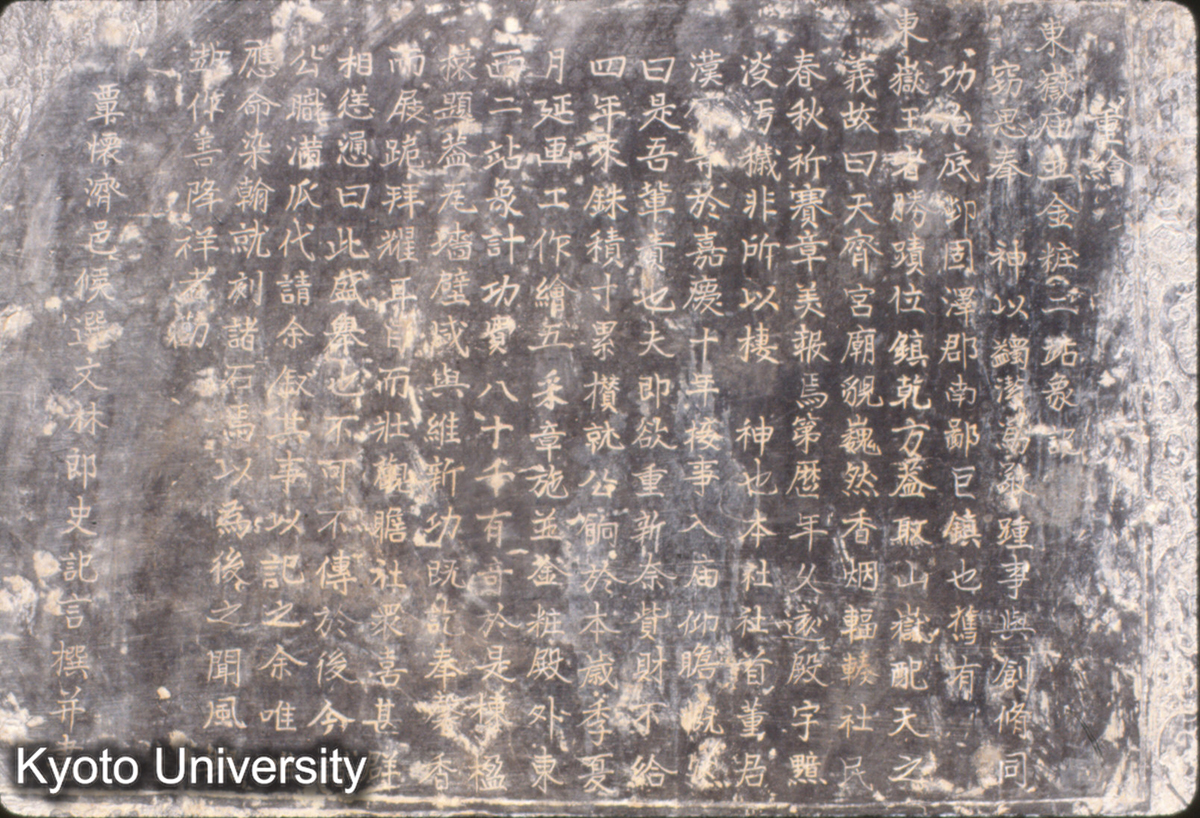 重繪
東嶽庙並金粧二站象記
竊思奉 神以蠲潔為敬踵事與創脩同
功治底郇周澤郡南鄙巨鎮也舊有
東嶽王者勝蹟位鎮乾方蓋取山嶽配天之
義故曰天齊宮廟貌巍然香烟輻輳社民
春秋祈賽章美報焉第歷年久遠殿宇黯
淡汚穢非所以棲 神也本社社首董君
漢 於嘉慶十年接事入庙仰瞻
曰是吾輩責也夫即欲重新奈貲財不給
四年來銖積寸累櫕就公餉於本歲季夏
月延画工作繪五采章施並金粧殿外東
西二站象計功費八十千有奇於是棟楹
榱題蓋瓦墻壁咸與維新功既訖奉馨香
而展跪拜耀耳目而壯觀瞻社眾喜甚
相慫慂曰此盛舉也不可不傳於後今
公職滿瓜代請余叙其事以記之余唯
應命染翰就刻諸石焉以為後之聞風
作善降祥者勸
覃懷濟邑候選文林郎史記言撰并
Kyoto University